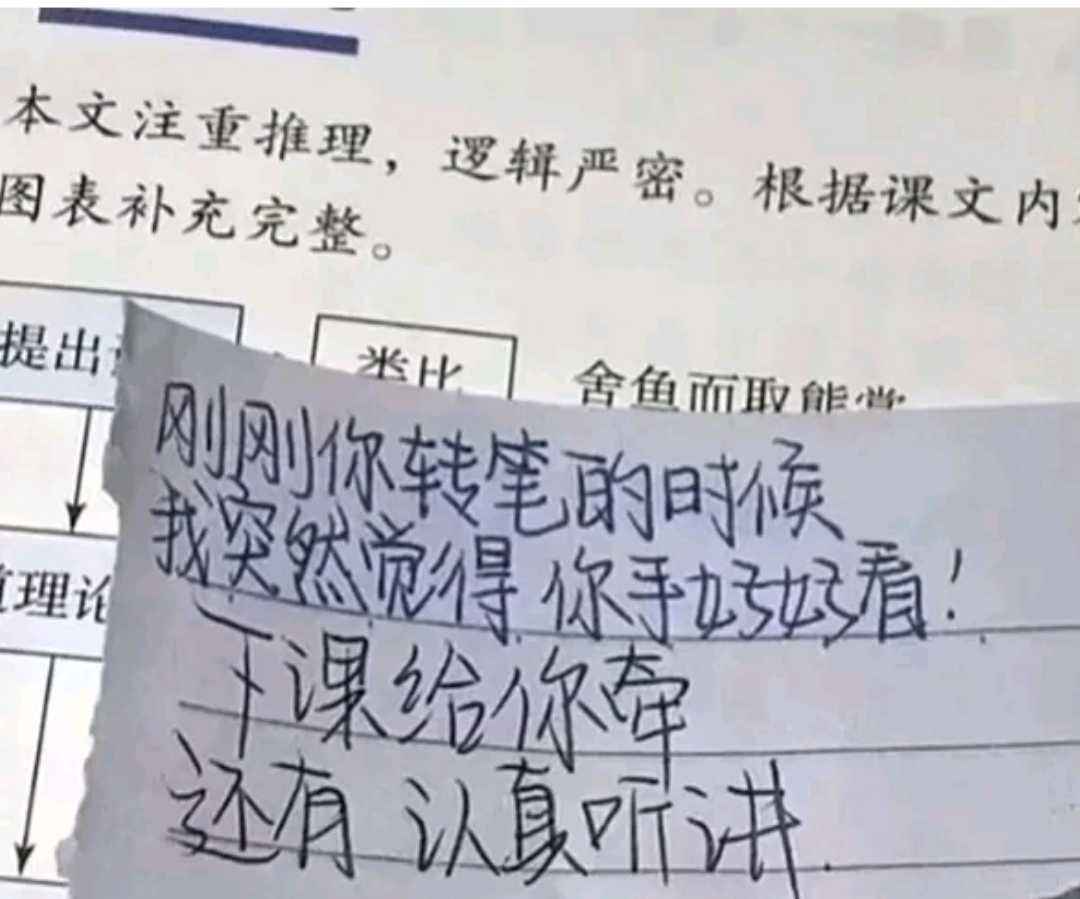 本文注重推理，逻辑严密。根据课文内
图表补充完整。
提出
类比
舍鱼而取熊掌
理论
刚刚你转笔的时候
我突然觉得 你手好好看！
下课给你牵
还有 认真听讲.